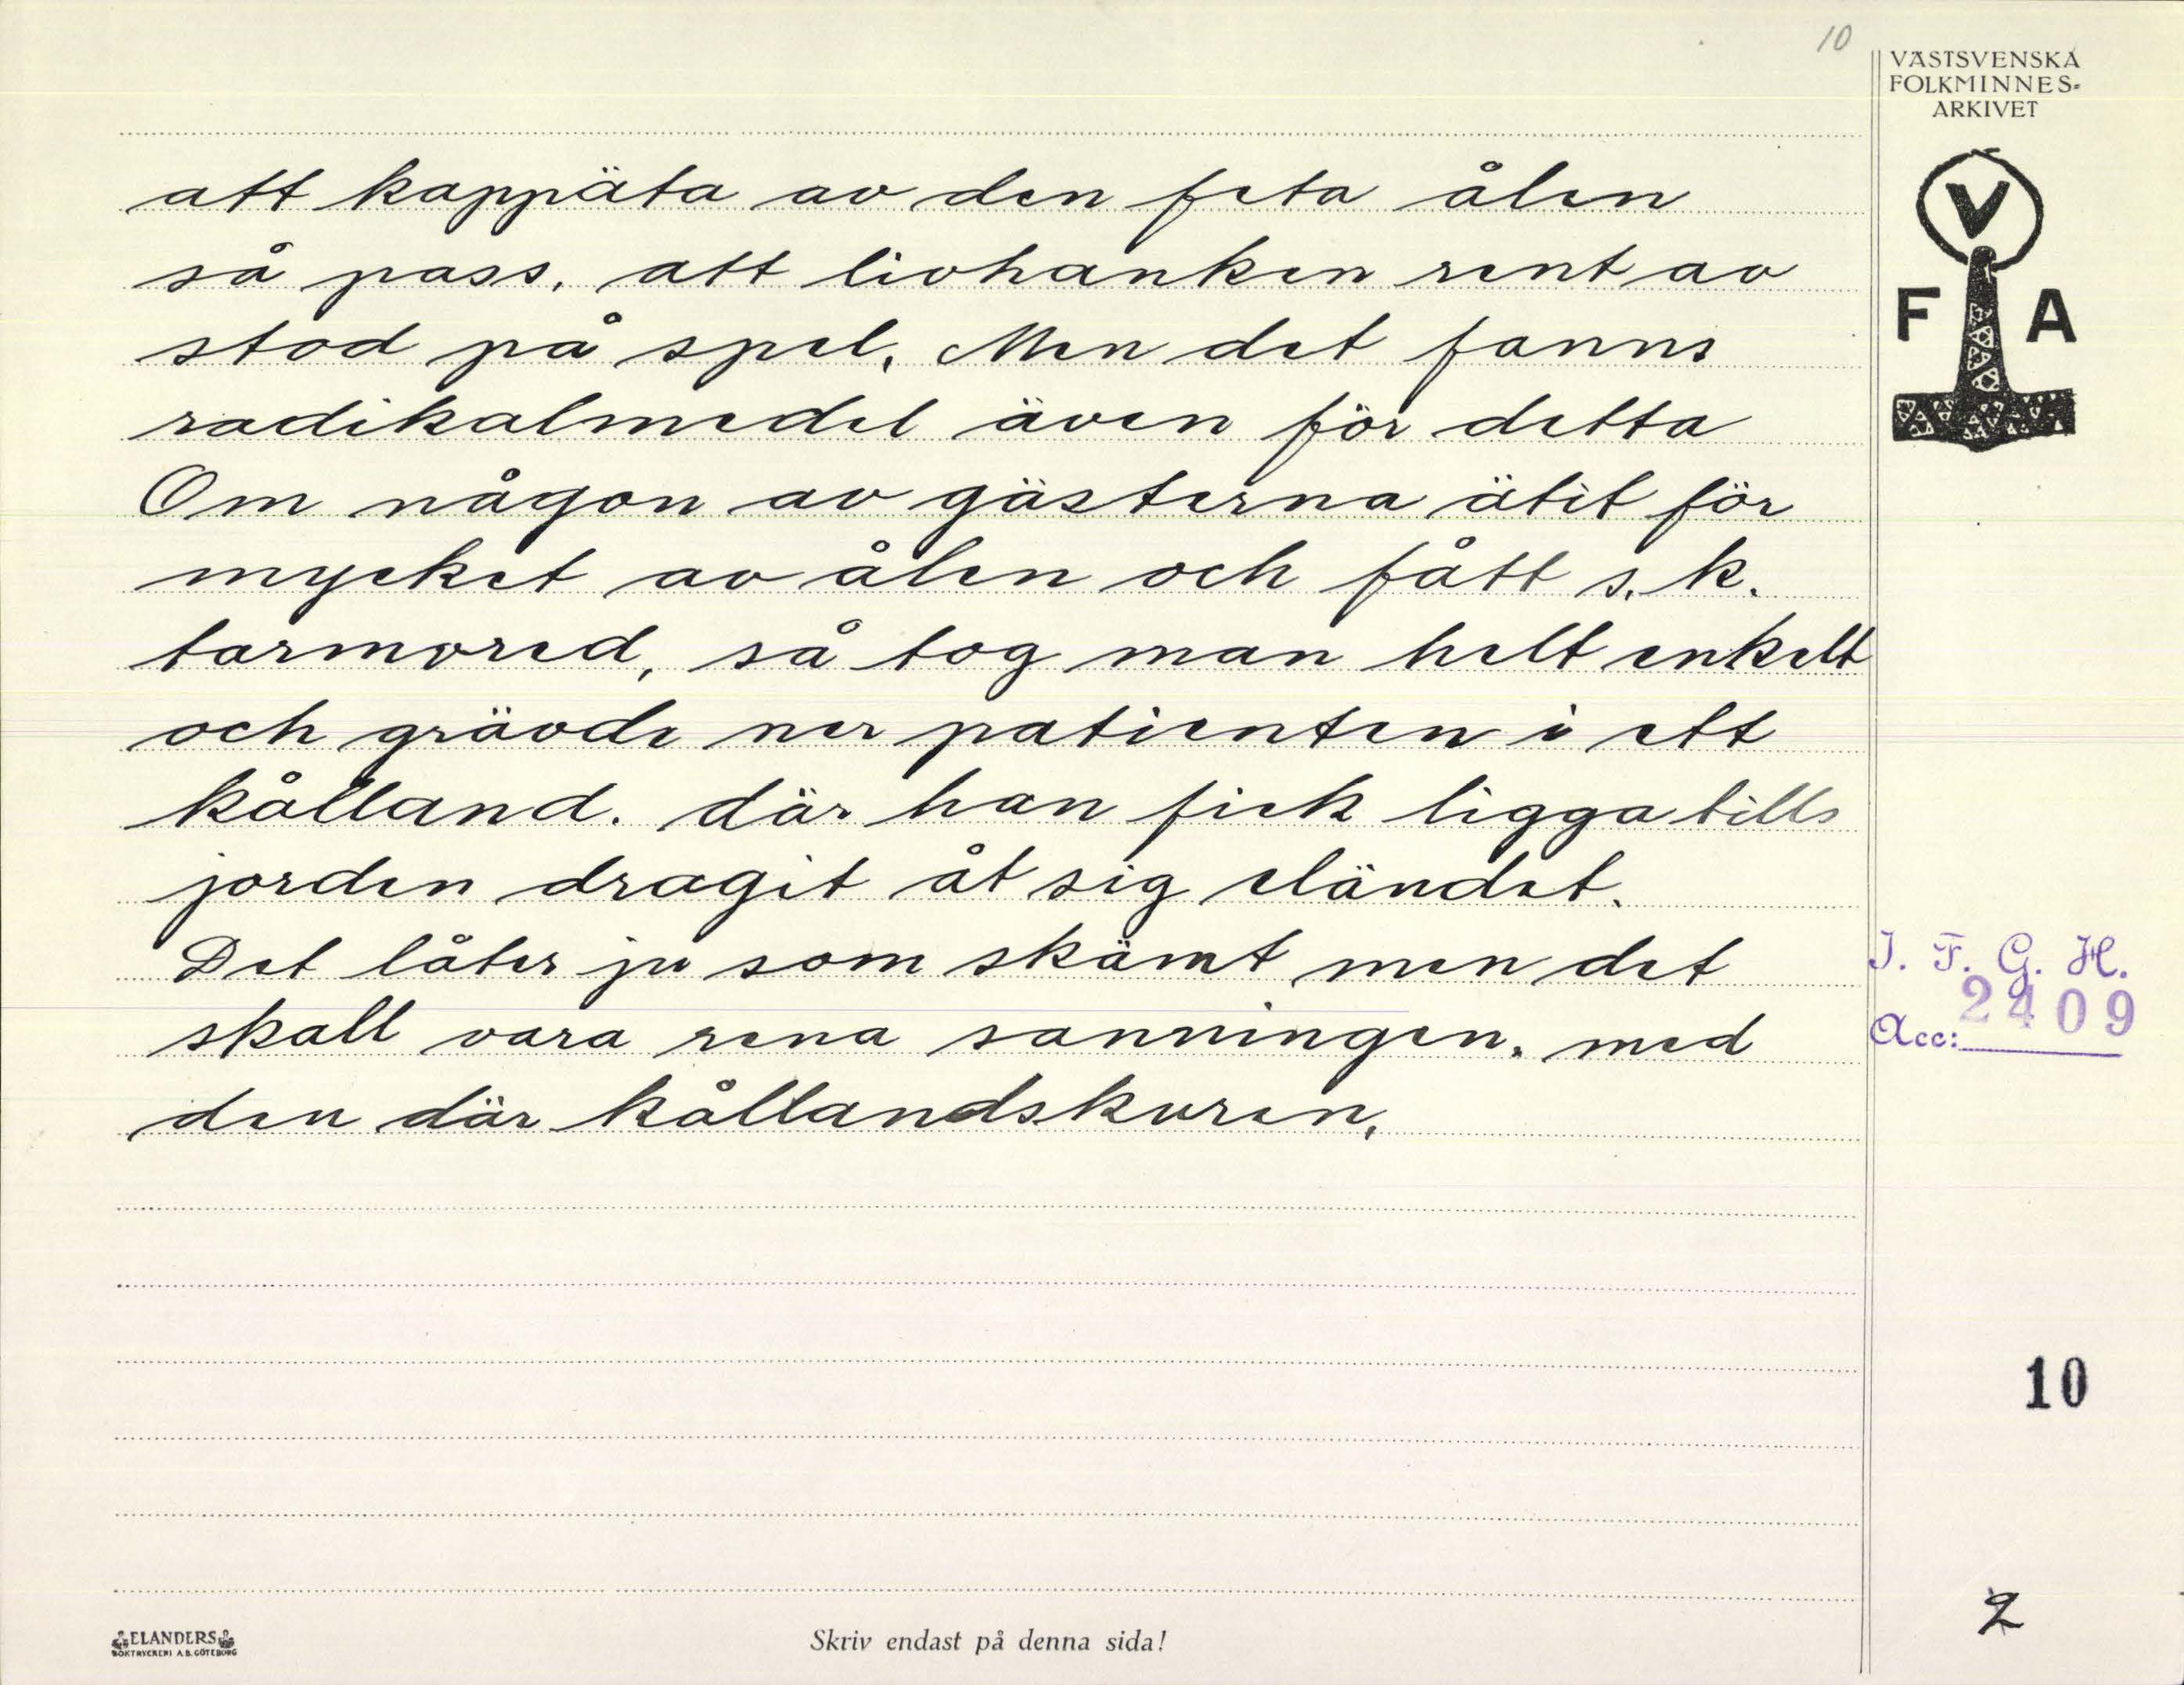 10
VÄSTSVENSKA
FOLKMINNES-
ARKIVET
V
F A
att kappäta av den feta ålen
så pass, att livhanken rent av
stod på spel, Men det fanns
radikalmedel även för detta
Om någon av gästerna ätit för
mycket av ålen och fått s.k.
tarmvred, så tog man helt enkelt
och grävde ner patienten i ett
kålland. där han fick ligga tills
jorden dragit åt sig eländet.
Det låter ju som skämt men det
skall vara rena sanningen, med
den där kållandskuren,
I. F. G. H.
Acc: 2409
10
2
ELANDERS
BOKTRYCKERI A.B. GÖTEBORG
Skriv endast på denna sida!